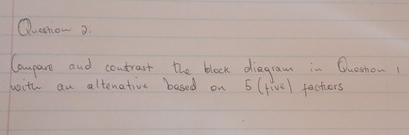 Question 2.
Compare and contrast the block diagram in Question 1
with an altenative based on 5 (five) factors